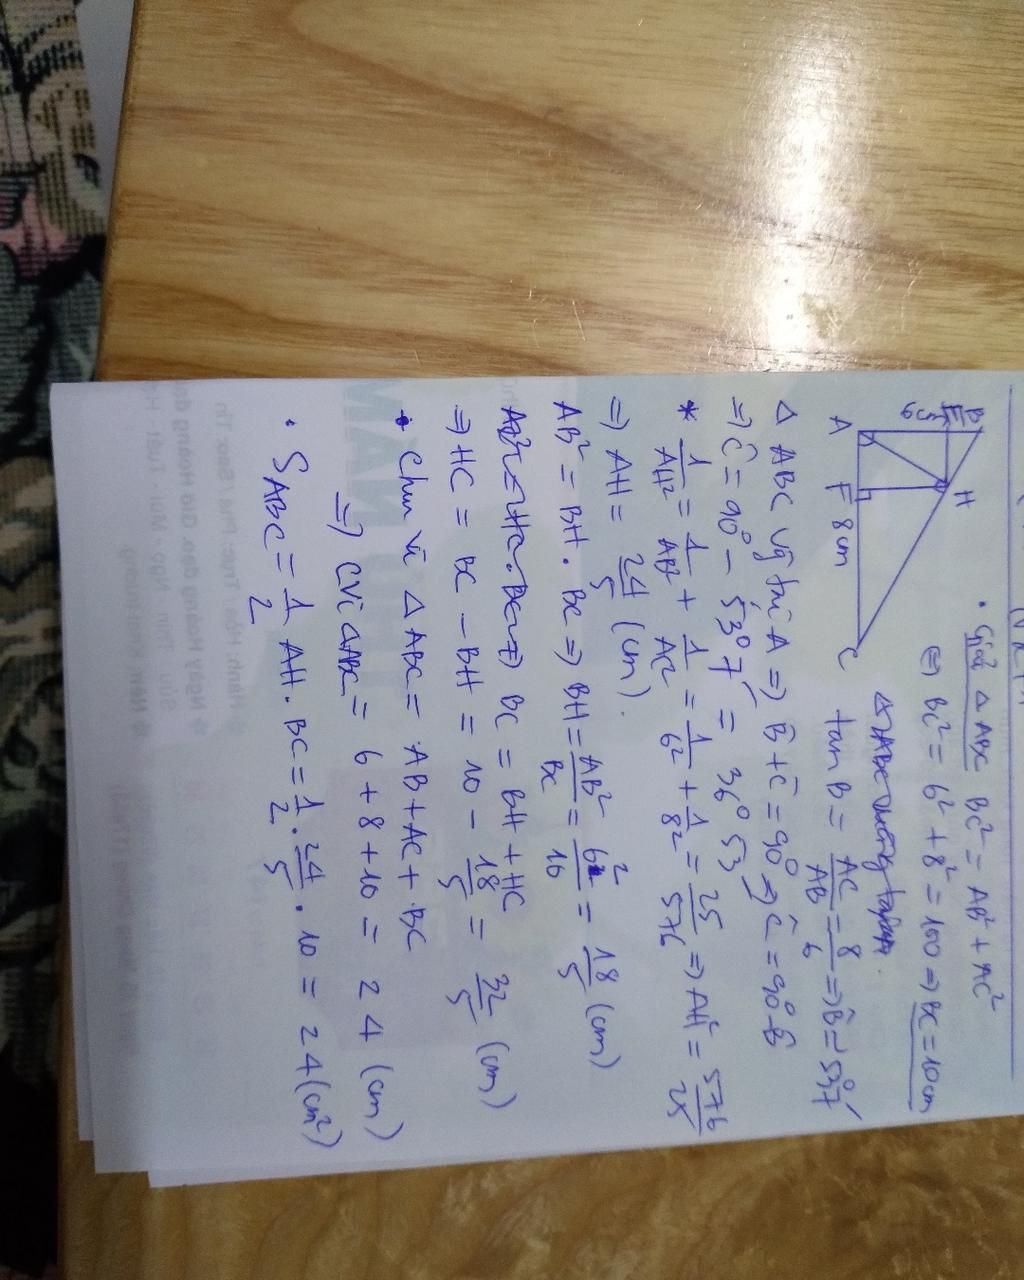 • Giải △ABC BC² = AB² + AC²
⇒ BC² = 6² + 8² = 100 ⇒ BC = 10cm
tan B = AC/AB = 8/6 ⇒ B̂ ≈ 53°7′
B
E
6cm
H
A
F
8cm
C
△ ABC vg tại A ⇒ B̂ + Ĉ = 90° ⇒ Ĉ = 90° - B̂
⇒ Ĉ = 90° - 53°7′ = 36°53′
* 1/AH² = 1/AB² + 1/AC² = 1/6² + 1/8² = 25/576 ⇒ AH² = 576/25
⇒ AH = 24/5 (cm).
AB² = BH . BC ⇒ BH = AB²/BC = 6²/10 = 18/5 (cm)
BC = BH + HC
⇒ HC = BC - BH = 10 - 18/5 = 32/5 (cm)
• Chu vi △ ABC = AB + AC + BC
⇒ CVi △ABC = 6 + 8 + 10 = 24 (cm)
• SABC = 1/2 AH . BC = 1/2 . 24/5 . 10 = 24 (cm²)